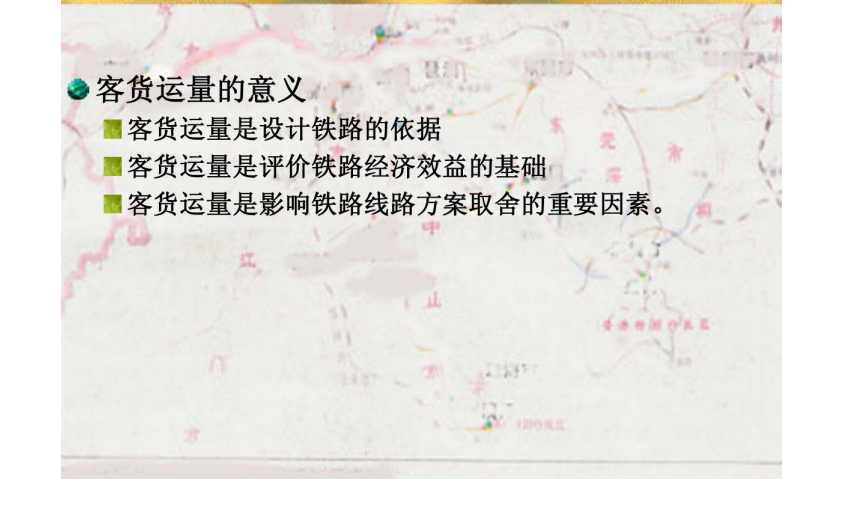 客货运量的意义
客货运量是设计铁路的依据
客货运量是评价铁路经济效益的基础
客货运量是影响铁路线路方案取舍的重要因素。
东
莞
常
中
江
山
门
市